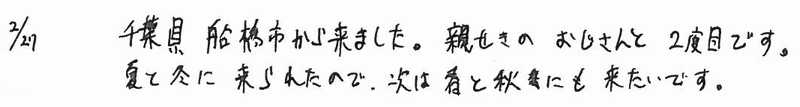 2/27 千葉県 船橋市から来ました。親せきの おじさんと 2度目です。
夏と冬に 来られたので、次は 春と秋にも 来たいです。